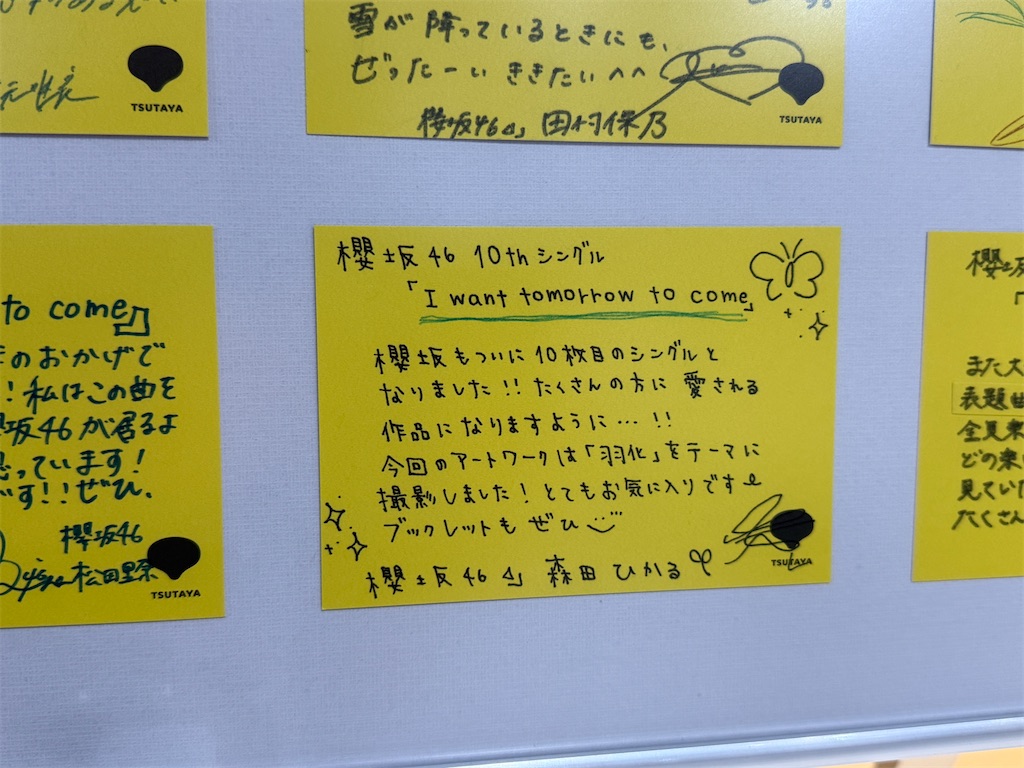 TSUTAYA
雪が降っているときにも、
ぜったーい ききたい^^
櫻坂46 田村保乃
TSUTAYA
to come』
のおかげで
!私はこの曲を
坂46が居るよ
思っています!
です!!ぜひ、
櫻坂46
松田里奈
TSUTAYA
櫻坂46 10thシングル
「I want tomorrow to come」
櫻坂もついに10枚目のシングルと
なりました!!たくさんの方に愛される
作品になりますように…!!
今回のアートワークは「羽化」をテーマに
撮影しました!とてもお気に入りです
ブックレットもぜひ
櫻坂46 森田ひかる
TSUTAYA
櫻坂
「
また大
表題曲
全員楽
どの楽
見ていた
たくさん